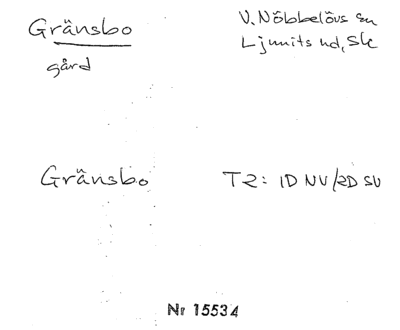 Gränsbo
gård
V. Nöbbelövs sn
Ljunits hd, Sk
Gränsbo
T2: 1D NV/2D SV
Nr 15534